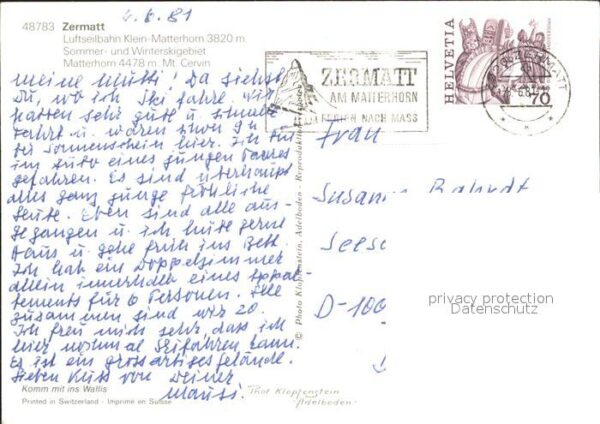 4.6.81
48783 Zermatt
Luftseilbahn Klein-Matterhorn 3820 m.
Sommer- und Winterskigebiet
Matterhorn 4478 m. Mt. Cervin
meine Mutti! Da siehst
Du, wo ich Ski fahre. Wir
hatten sehr gute u. schnelle
Fahrt u. waren schon 9 h
bei Sonnenschein hier. Ich bin
im Auto eines jungen Paares
gefahren. Es sind überhaupt
alles ganz junge fröhliche
Leute. Eben sind alle aus-
gegangen u. ich hüte gerne
Haus u. gehe früh ins Bett.
Ich hab ein Doppelzimmer
allein innerhalb eines Appar-
tements für 6 Personen. Alle
zusammen sind wir 20.
Ich freu mich sehr, dass ich
hier nochmal Skifahren kann.
Es ist ein grossartiges Gelände.
Lieben Kuss von Deiner
Mausi!
Komm mit ins Wallis
Printed in Switzerland - Imprimé en Suisse
© Photo Klopfenstein, Adelboden - Reproduktion
Phot Klopfenstein
Adelboden
ZERMATT
AM MATTERHORN
FERIEN NACH MASS
HELVETIA
70
ZERMATT
Frau
Susanne
Seesc
D-100
privacy protection
Datenschutz